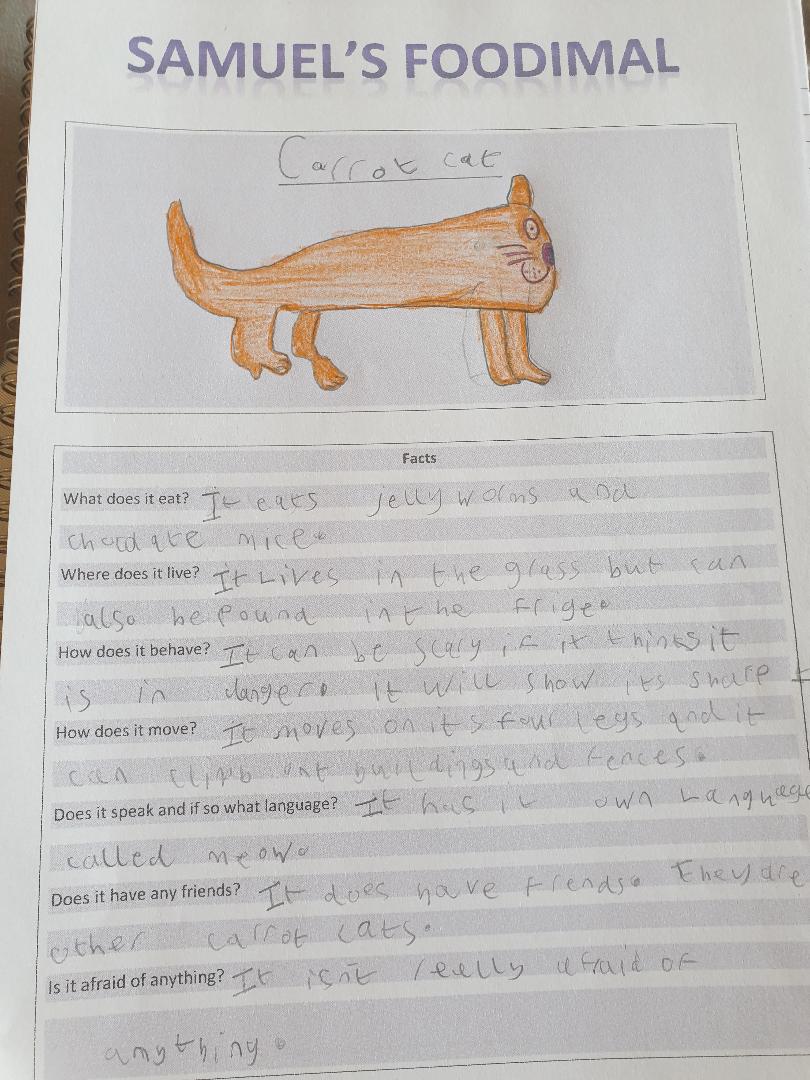 SAMUEL'S FOODIMAL
Carrot cat
Facts
What does it eat? It eats jelly worms and
choclate mice.
Where does it live? It Lives in the grass but can
also be found in the frige.
How does it behave? It can be scary if it thinks it
is in danger. it will show its sharp t
How does it move? It moves on it's four legs and it
can climb ont buildings and fences.
Does it speak and if so what language? It has it own Language
called meow.
Does it have any friends? It does have friends. They are
other carrot cats.
Is it afraid of anything? It isn't really afraid of
anything.